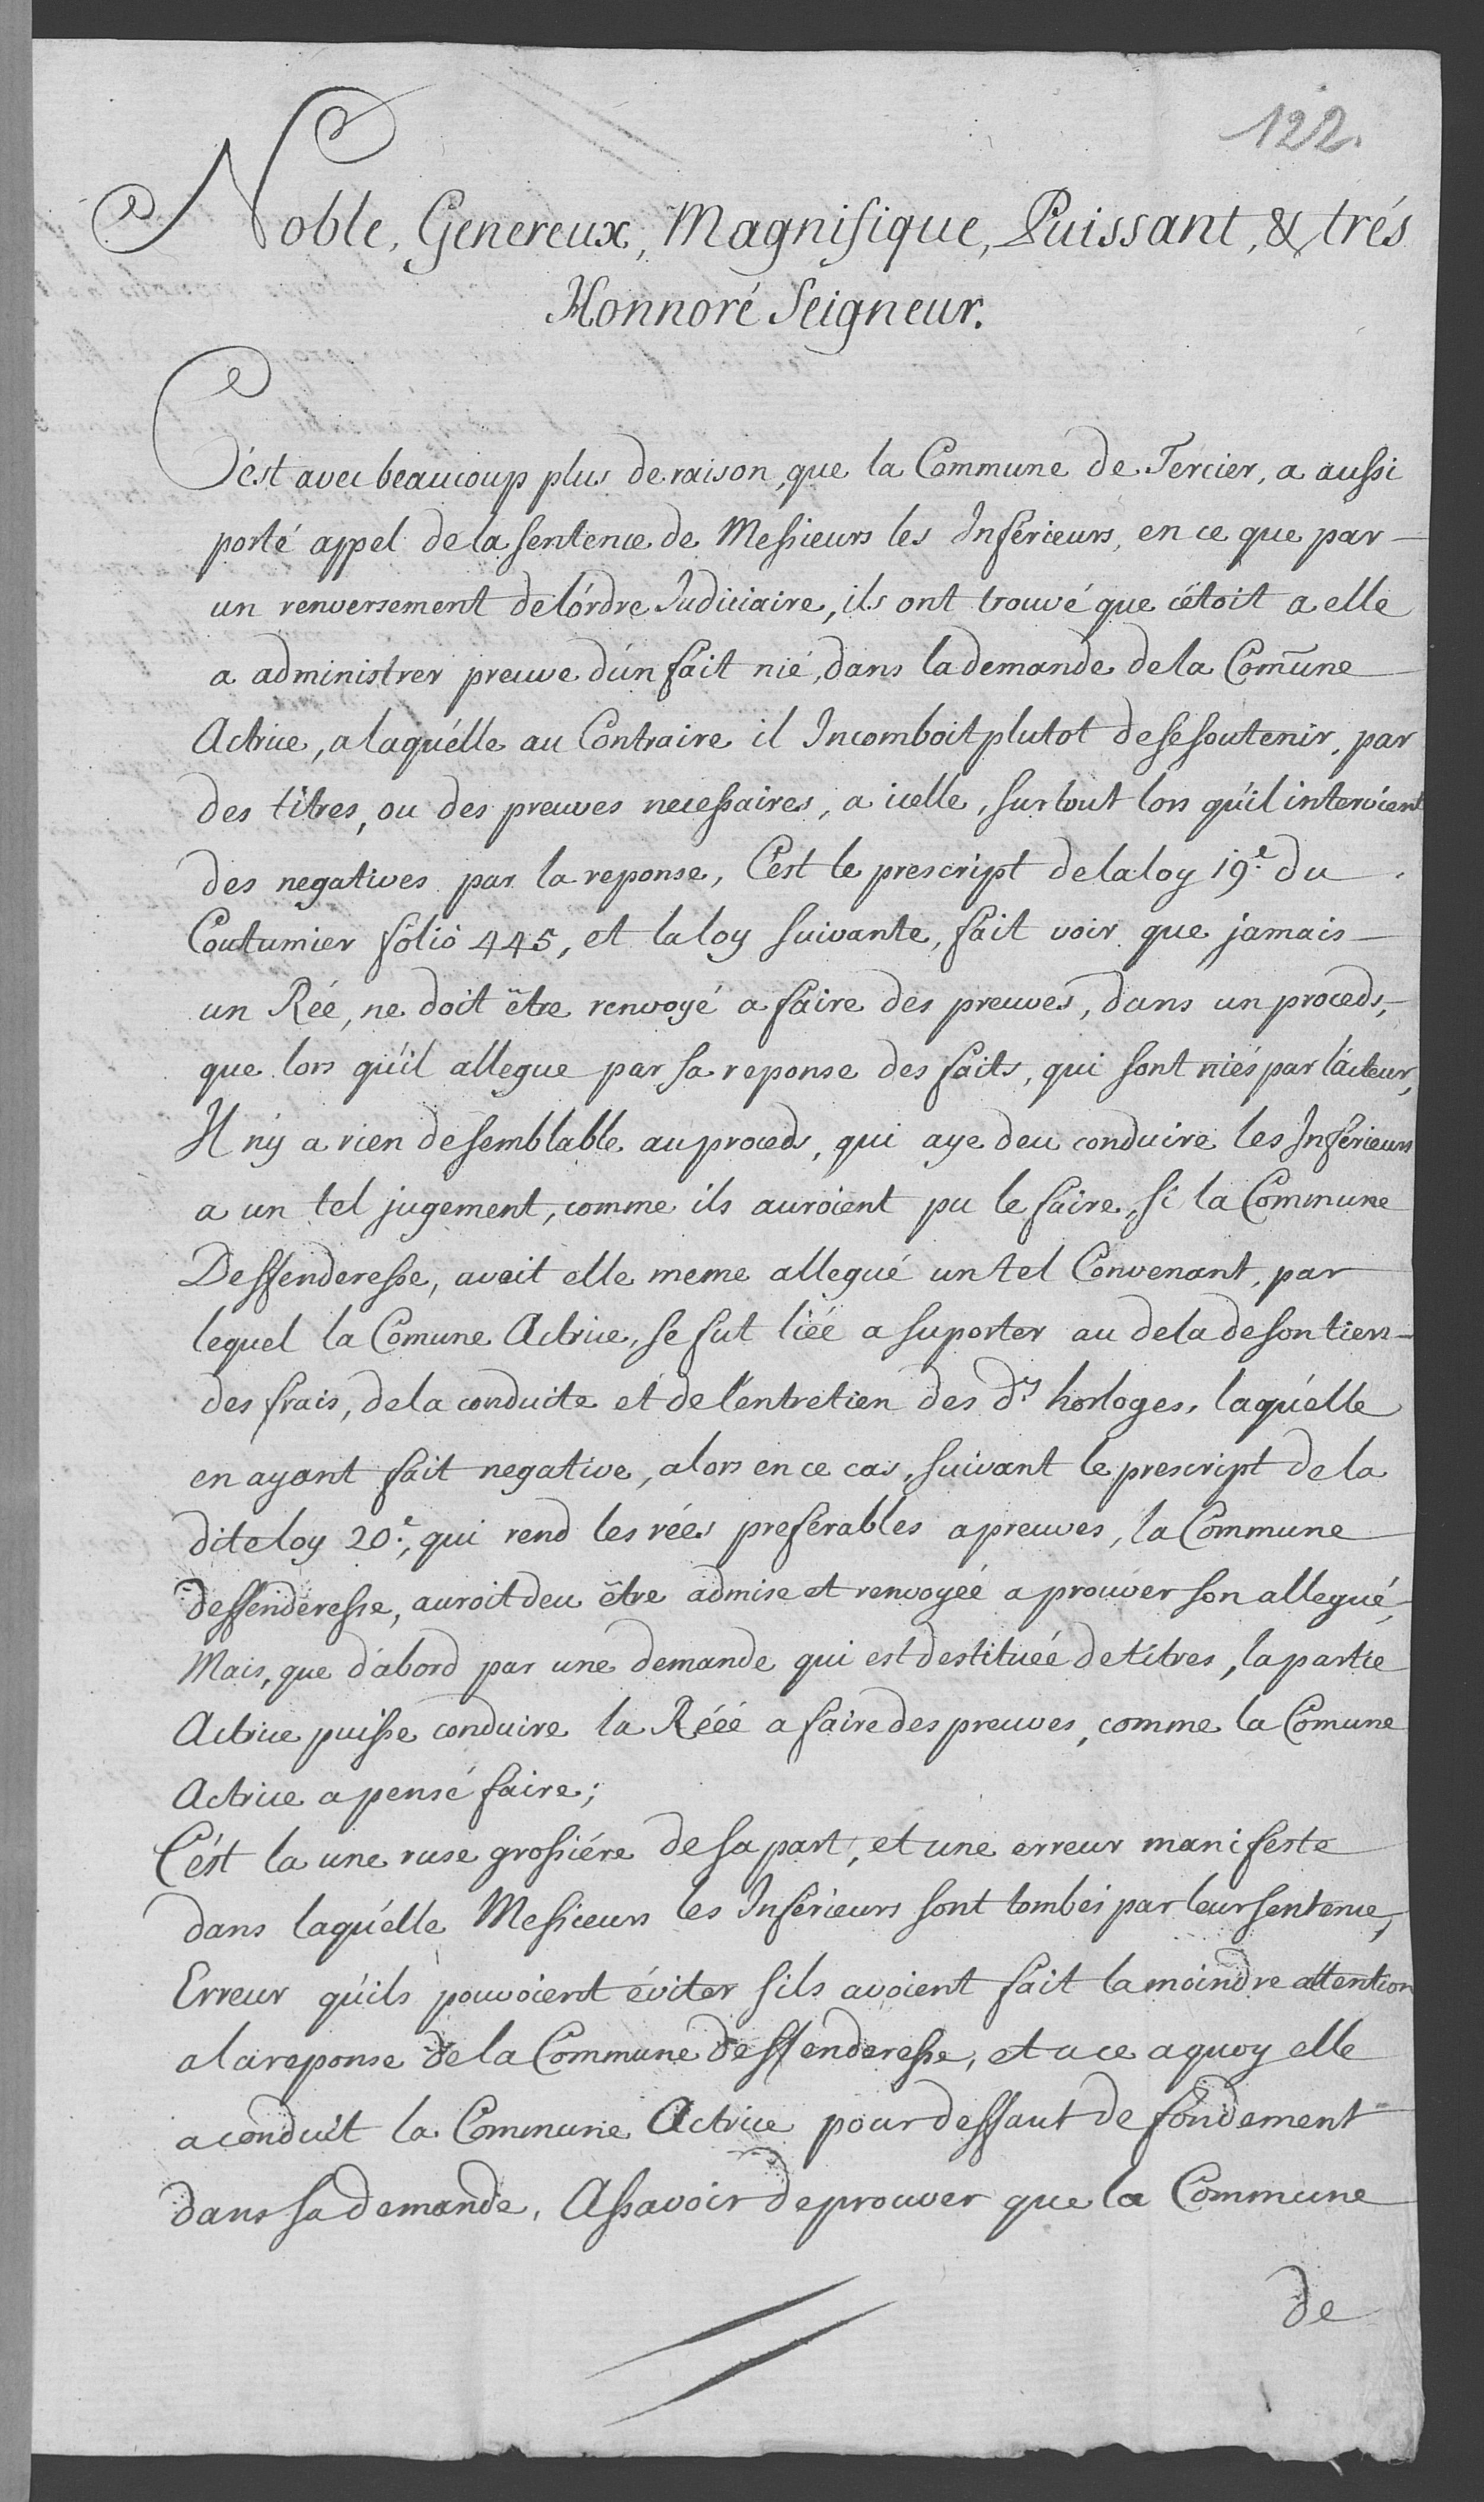 122.
Noble, Genereux, Magnifique, Puissant, & trés
Honnoré Seigneur.
C'est avec beaucoup plus de raison, que la Commune de Tercier, a aussi
porté appel de la sentence de Messieurs les Inférieurs, en ce que par
un renversement de l'ordre Judiciaire, ils ont trouvé que c'étoit a elle
a administrer preuve d'un fait nié, dans la demande de la Com̄une
Actrice, a laquélle au Contraire il Incomboit plutot de se soutenir, par
des titres, ou des preuves necessaires, a icelle, sur tout lors qu'il intervient
des negatives par la reponse, C'est le prescript de la loy 19.e du
Coutumier folio 445, et la loy suivante, fait voir que jamais
un Rée, ne doit être renvoyé a faire des preuves, dans un proceds,
que lors qu'il allegue par sa reponse des faits, qui sont niés par l'acteur,
Il n'y a rien de semblable au proceds, qui aye deu conduire les Inférieurs
a un tel jugement, comme ils auroient pu le faire, si la Commune
Deffenderesse, avoit elle meme allegué un tel Convenant, par
lequel la Comune Actrice, se fut liéé a suporter au dela de son tiers
des frais, de la conduite et de l'entretien des d.s horloges, laquélle
en ayant fait negative, alors en ce cas, suivant le prescript de la
dite loy 20.e, qui rend les rées preferables a preuves, la Commune
deffenderesse, auroit deu être admise et renvoyéé a prouver son allegué,
Mais, que d'abord par une demande qui est destituéé de titres, la partie
Actrice puisse conduire la Réeé a faire des preuves, comme la Comune
Actrice a pensé faire;
C'ést la une ruse grossiére de sa part, et une erreur manifeste
dans laquélle Messieurs les Inférieurs sont tombés par leur sentence,
Erreur qu'ils pouvoient éviter s'ils avoient fait la moindre attention
a la reponse de la Commune deffenderesse, et a ce a quoy elle
a conduit la Commune Actrice pour deffaut de fondement
dans sa demande, Assavoir de prouver que la Commune
de